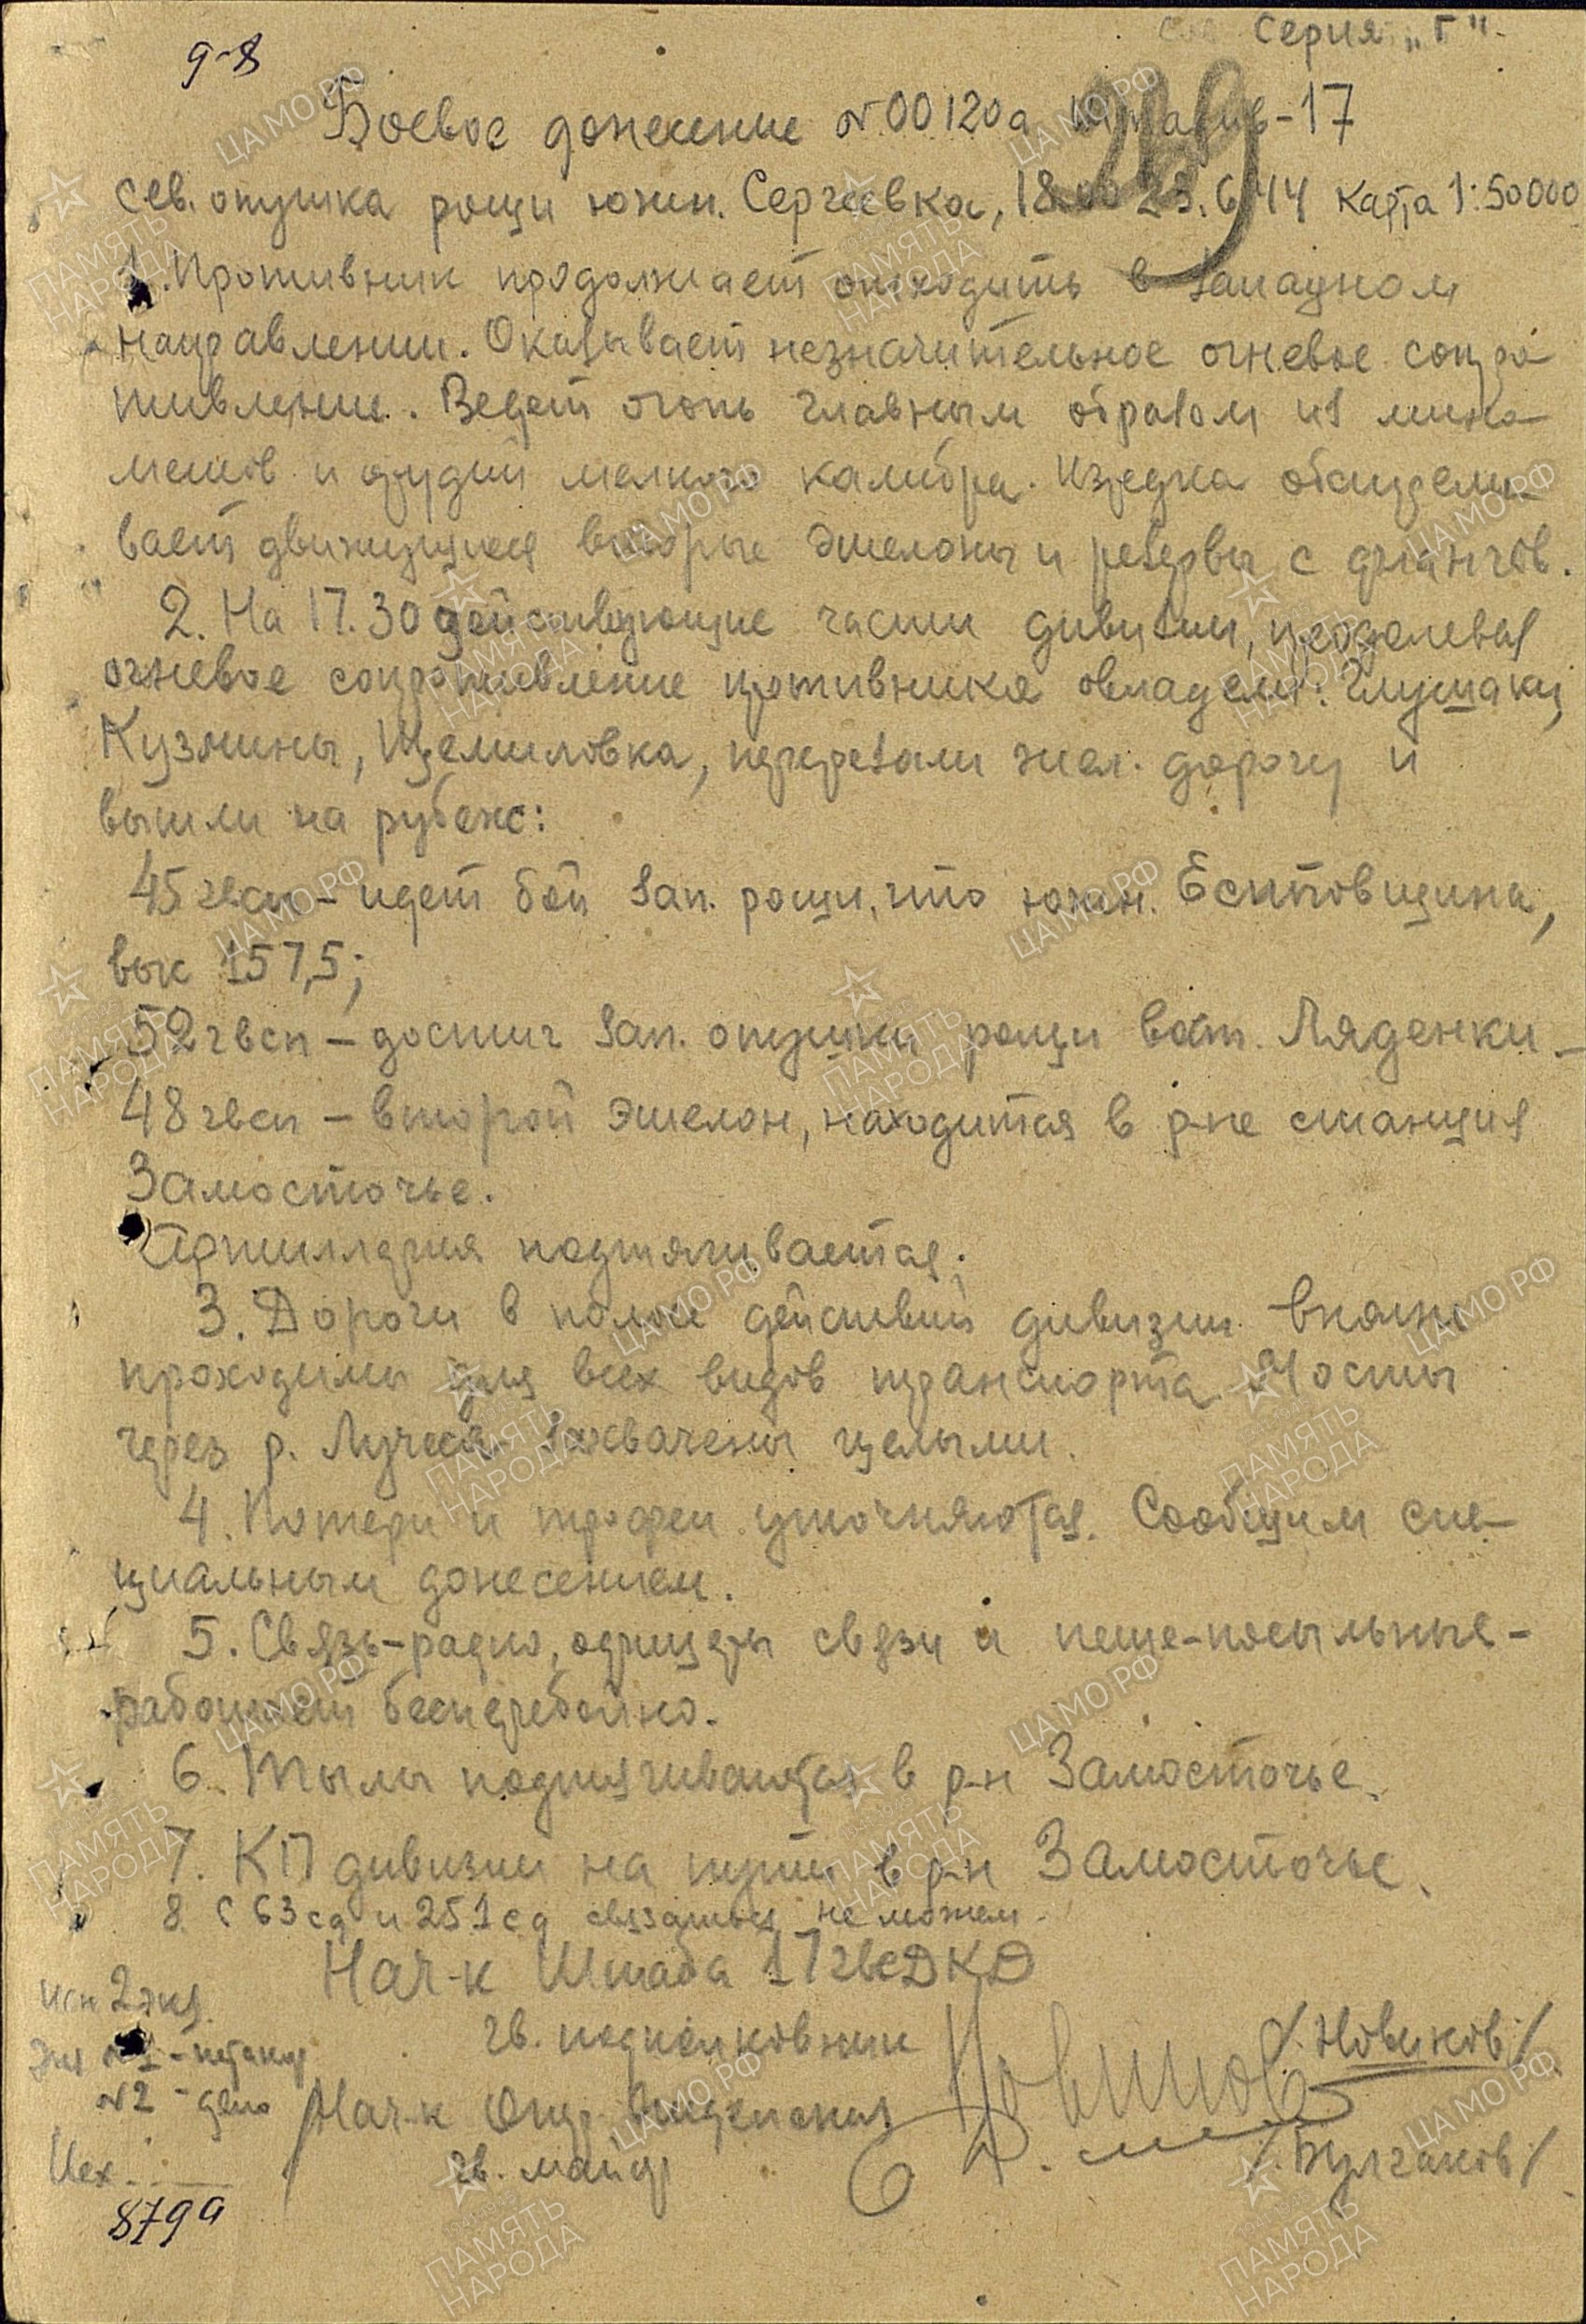 Серия „Г"
д-8
Боевое донесение №00120а Штадив-17
сев. опушка рощи южн. Сергеевка, 18.00 23.6.44 Карта 1:50000
1. Противник продолжает отходить в западном
направлении. Оказывает незначительное огневое сопро-
тивление. Ведет огонь главным образом из мино-
метов и орудий мелкого калибра. Изредка обстрели-
вает движущиеся вторые эшелоны и резервы с флангов.
2. На 17.30 действующие части дивизии, преодолевая
огневое сопротивление противника овладели: Глушаки,
Кузмины, Щемиловка, перерезали жел. дорогу и
вышли на рубеж:
45 гвсп - идет бой зап. рощи, что южн. Еситовщина,
выс 157,5;
52 гвсп - достиг зап. опушки рощи вост. Ляденки -
48 гвсп - второй эшелон, находится в р-не станция
Замосточье.
Артиллерия подтягивается.
3. Дороги в полосе действий дивизии вполне
проходимы для всех видов транспорта. Мосты
через р. Лучеса захвачены целыми.
4. Потери и трофеи уточняются. Сообщим спе-
циальным донесением.
5. Связь-радио, офицеры связи и пеше-посыльные -
работает бесперебойно.
6. Тылы подтягиваются в р-н Замосточье.
7. КП дивизии на пути в р-н Замосточье.
8. С 63сд и 251сд связаться не можем.
Нач-к Штаба 17гвсДКД
гв. подполковник /Новиков/
Нач-к Опер. отделения
гв. майор /Булгаков/
исп 2 экз.
Экз №1-
№2 - дело
Исх.
879а